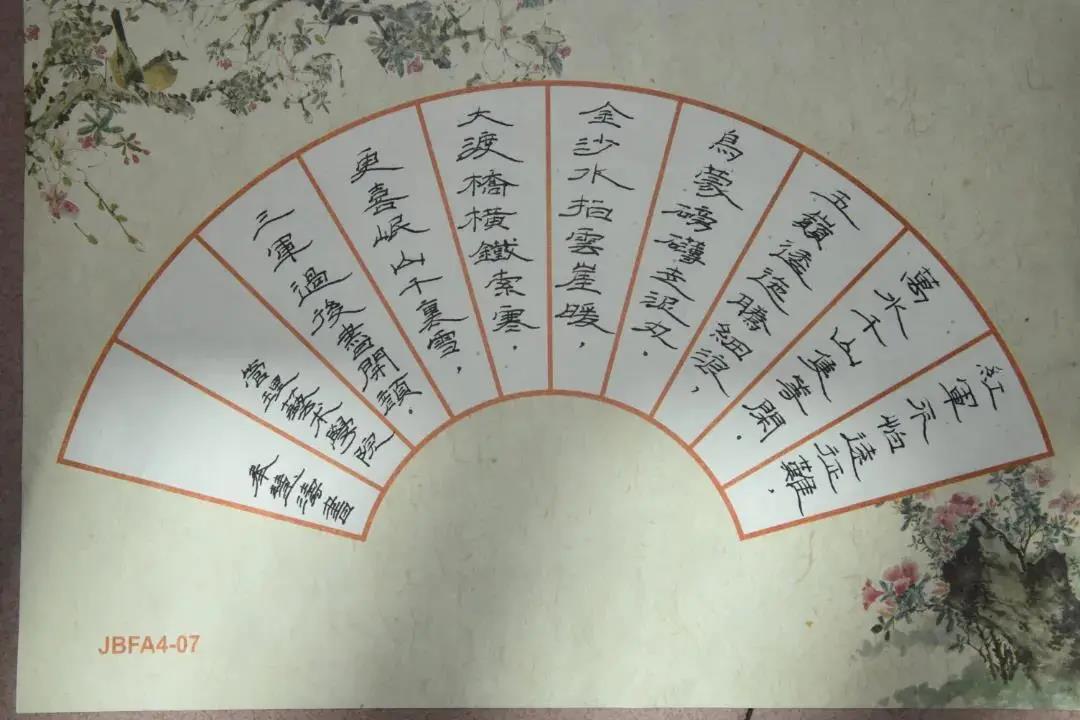 紅軍不怕遠征難，
萬水千山隻等閑.
五嶺逶迤騰細浪，
烏蒙磅礴走泥丸.
金沙水拍雲崖暖，
大渡橋橫鐵索寒，
更喜岷山千裏雪，
三軍過後盡開顏.
管理藝術學院
濤書
JBFA4-07